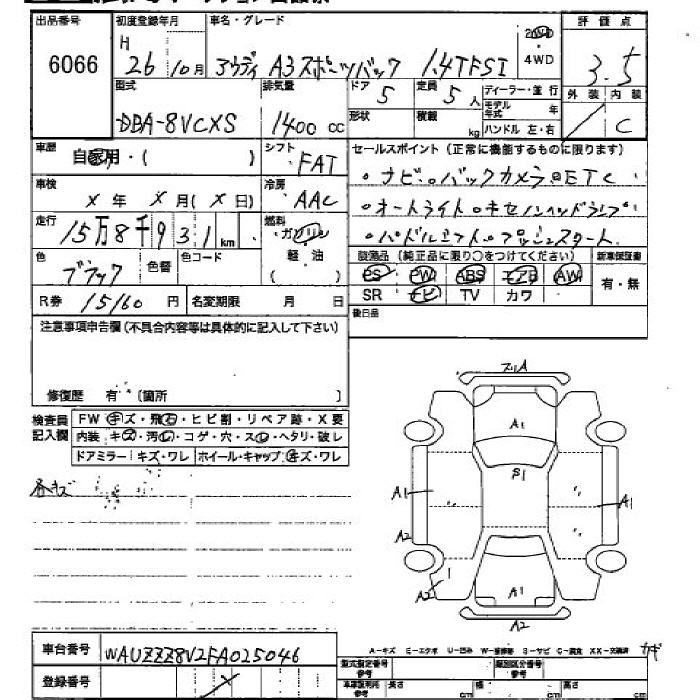 出品番号
6066
初度登録年月
H
26年10月
車名・グレード
アウディ A3スポーツバック 1.4TFSI
2WD
4WD
評価点
3.5
外装 内装
C
型式
DBA-8VCXS
排気量
1400 cc
ドア
5
定員
5人
形状
積載
kg
ディーラー・並行
モデル年式 年
ハンドル 左・右
車歴
自家用・( )
シフト
FAT
セールスポイント(正常に機能するものに限ります)
・ナビ・バックカメラ・ETC
・オートライト・キセノンヘッドランプ
・パドルシフト・プッシュスタート
車検
X年 X月(X日)
冷房
AAC
走行
15万8千931km
燃料
ガソリン
軽油
( )
色
ブラック
色替
色コード
装備品(純正品に限り○をつけてください)
新車保証書
PS PW ABS エアB AW
有・無
SR ナビ TV カワ
R券 15160円
名変期限 月 日
後日品
注意事項申告欄(不具合内容等は具体的に記入して下さい)
修復歴 有(箇所 )
検査員
記入欄
FW キズ・飛石・ヒビ割・リペア跡・X要
内装・キズ・汚レ・コゲ・穴・スレ・ヘタリ・破レ
ドアミラー キズ・ワレ ホイール・キャップ キズ・ワレ
各キズ
A1
S1
A1
A1
A2
A2
A1
A2
A-キズ E-エクボ U-凹み W-補修跡 S-サビ C-腐食 XX-交換済
車台番号
WAUZZZ8V2FA025046
登録番号
型式指定番号
参考
類別区分番号
参考
長さ
cm
幅
cm
高さ
cm